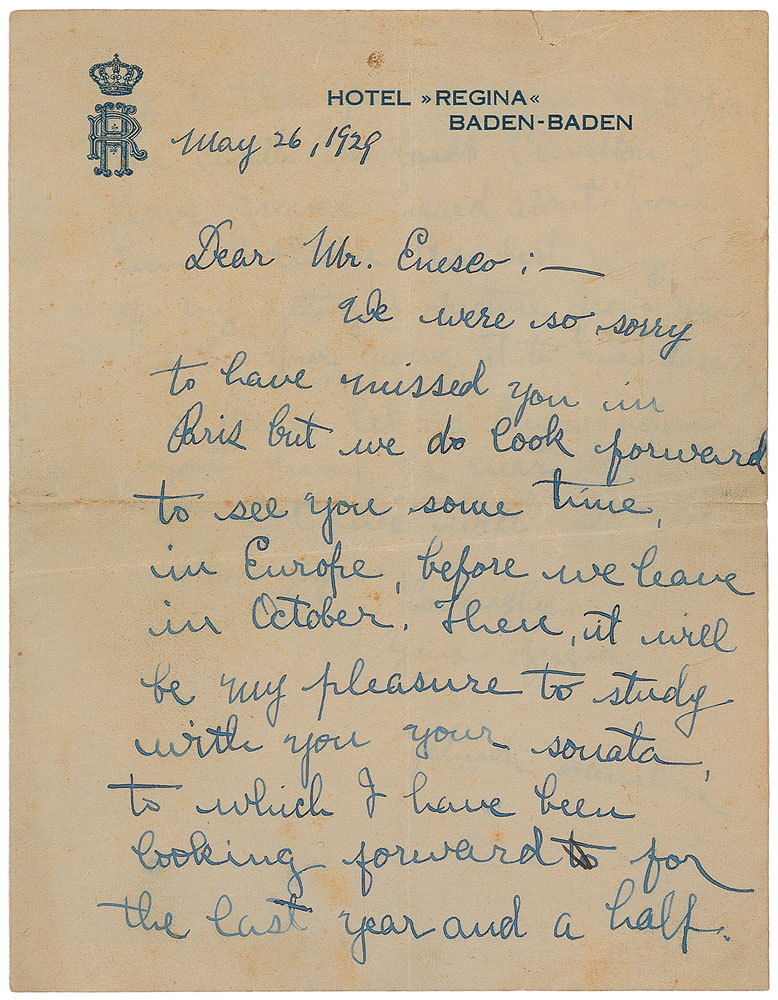 HOTEL »REGINA«
BADEN-BADEN
May 26, 1929
Dear Mr. Enesco : —
We were so sorry
to have missed you in
Paris but we do look forward
to see you some time,
in Europe, before we leave
in October. Then, it will
be my pleasure to study
with you your sonata,
to which I have been
looking forward to for
the last year and a half.